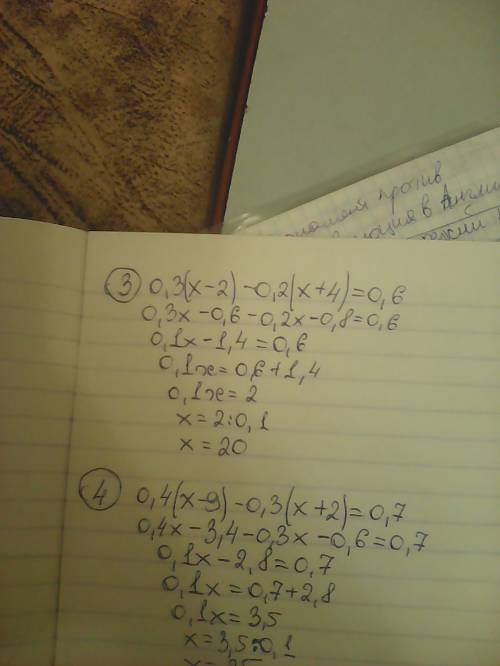 против
в Англи
③ 0,3(x-2)-0,2(x+4)=0,6
0,3x-0,6-0,2x-0,8=0,6
0,1x-1,4=0,6
0,1x=0,6+1,4
0,1x=2
x=2:0,1
x=20
④ 0,4(x-9)-0,3(x+2)=0,7
0,4x-3,4-0,3x-0,6=0,7
0,1x-2,8=0,7
0,1x=0,7+2,8
0,1x=3,5
x=3,5:0,1
x=35